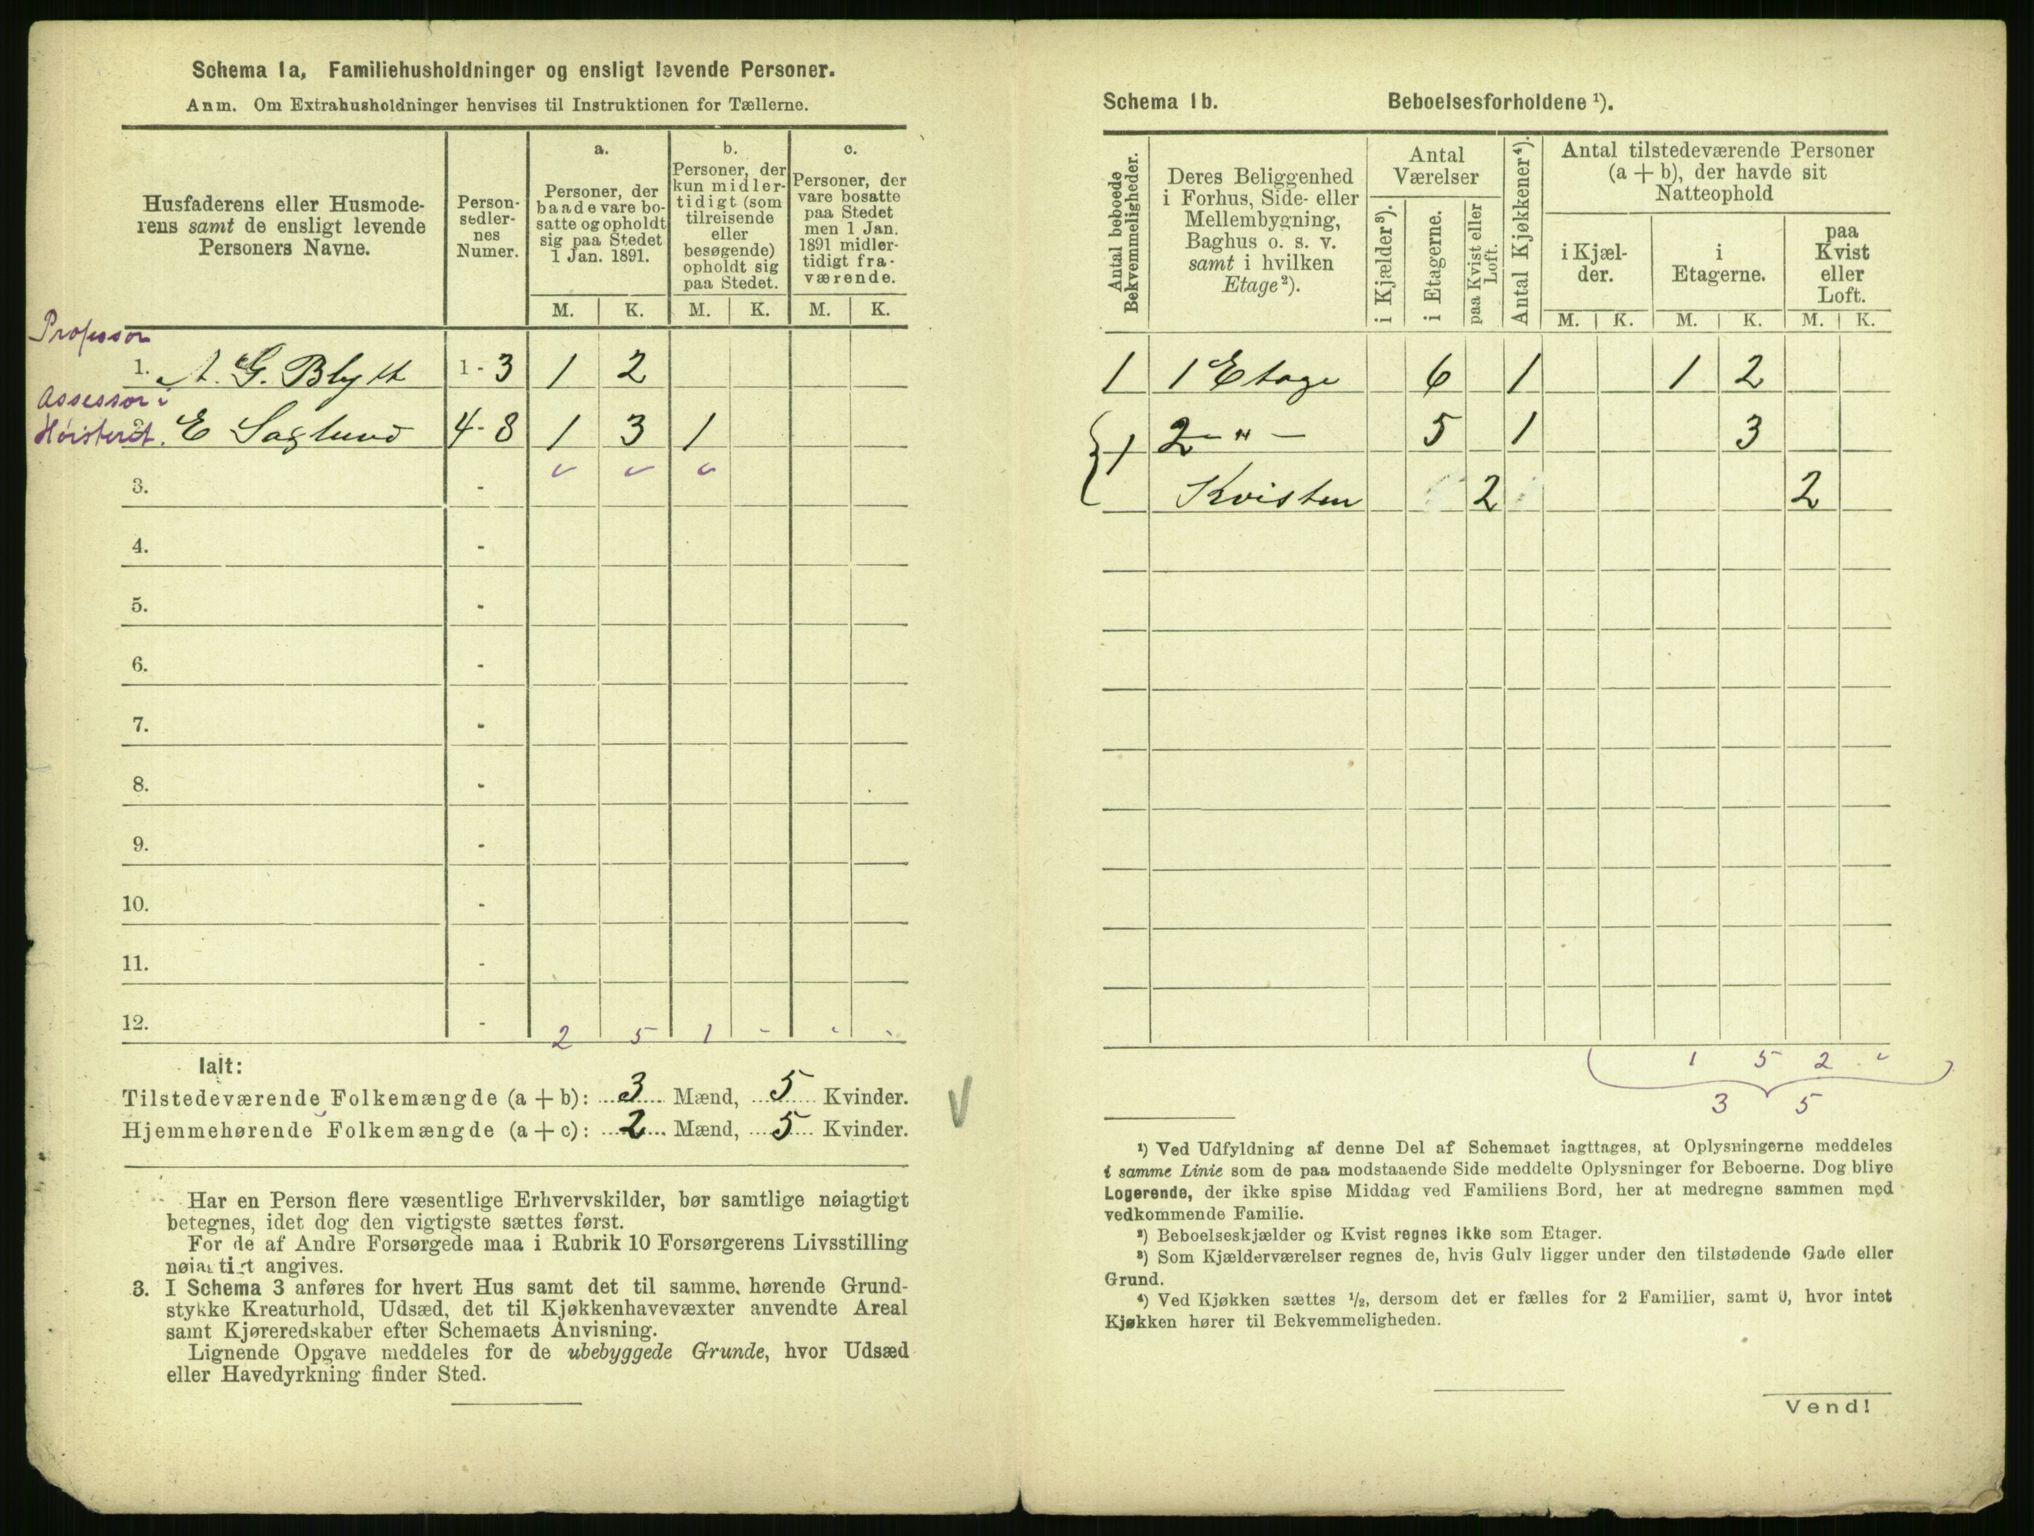 Schema 1a, Familiehusholdninger og ensligt levende Personer.
Anm. Om Extrahusholdninger henvises til Instruktionen for Tællerne.
Husfaderens eller Husmode-
rens samt de ensligt levende
Personers Navne.
Person-
sedler-
nes
Numer.
a.
Personer, der
baade vare bo-
satte og opholdt
sig paa Stedet
1 Jan. 1891.
b.
Personer, der
kun midler-
tidigt (som
tilreisende
eller
besøgende)
opholdt sig
paa Stedet.
c.
Personer, der
vare bosatte
paa Stedet
men 1 Jan.
1891 midler-
tidigt fra-
værende.
M. K. M. K. M. K.
Professor
1. A. G. Blytt 1 - 3 1 2
Assessor i
Høisteret. 2. E Saglund 4 - 8 1 3 1
3. -
4. -
5. -
6. -
7. -
8. -
9. -
10. -
11. -
12. - 2 5 1 - - -
Ialt:
Tilstedeværende Folkemængde (a + b): 3 Mænd, 5 Kvinder.
Hjemmehørende Folkemængde (a + c): 2 Mænd, 5 Kvinder.
Har en Person flere væsentlige Erhvervskilder, bør samtlige nøiagtigt
betegnes, idet dog den vigtigste sættes først.
For de af Andre Forsørgede maa i Rubrik 10 Forsørgerens Livsstilling
nøiagtigt angives.
3. I Schema 3 anføres for hvert Hus samt det til samme hørende Grund-
stykke Kreaturhold, Udsæd, det til Kjøkkenhavevæxter anvendte Areal
samt Kjøreredskaber efter Schemaets Anvisning.
Lignende Opgave meddeles for de ubebyggede Grunde, hvor Udsæd
eller Havedyrkning finder Sted.
Schema 1b. Beboelsesforholdene ¹).
Antal beboede
Bekvemmeligheder.
Deres Beliggenhed
i Forhus, Side- eller
Mellembygning,
Baghus o. s. v.
samt i hvilken
Etage²).
Antal
Værelser
i Kjælder³).
i Etagerne.
paa Kvist eller
Loft.
Antal Kjøkkener⁴).
Antal tilstedeværende Personer
(a + b), der havde sit
Natteophold
i Kjæl-
der.
i
Etagerne.
paa
Kvist
eller
Loft.
M. K. M. K. M. K.
1 1 Etage 6 1 1 2
1 2 - " - 5 1 3
Kvisten 2 2
1 5 2
3 5
¹) Ved Udfyldning af denne Del af Schemaet iagttages, at Oplysningerne meddeles
i samme Linie som de paa modstaaende Side meddelte Oplysninger for Beboerne. Dog blive
Logerende, der ikke spise Middag ved Familiens Bord, her at medregne sammen med
vedkommende Familie.
²) Beboelseskjælder og Kvist regnes ikke som Etager.
³) Som Kjælderværelser regnes de, hvis Gulv ligger under den tilstødende Gade eller
Grund.
⁴) Ved Kjøkken sættes ½, dersom det er fælles for 2 Familier, samt 0, hvor intet
Kjøkken hører til Bekvemmeligheden.
Vend!